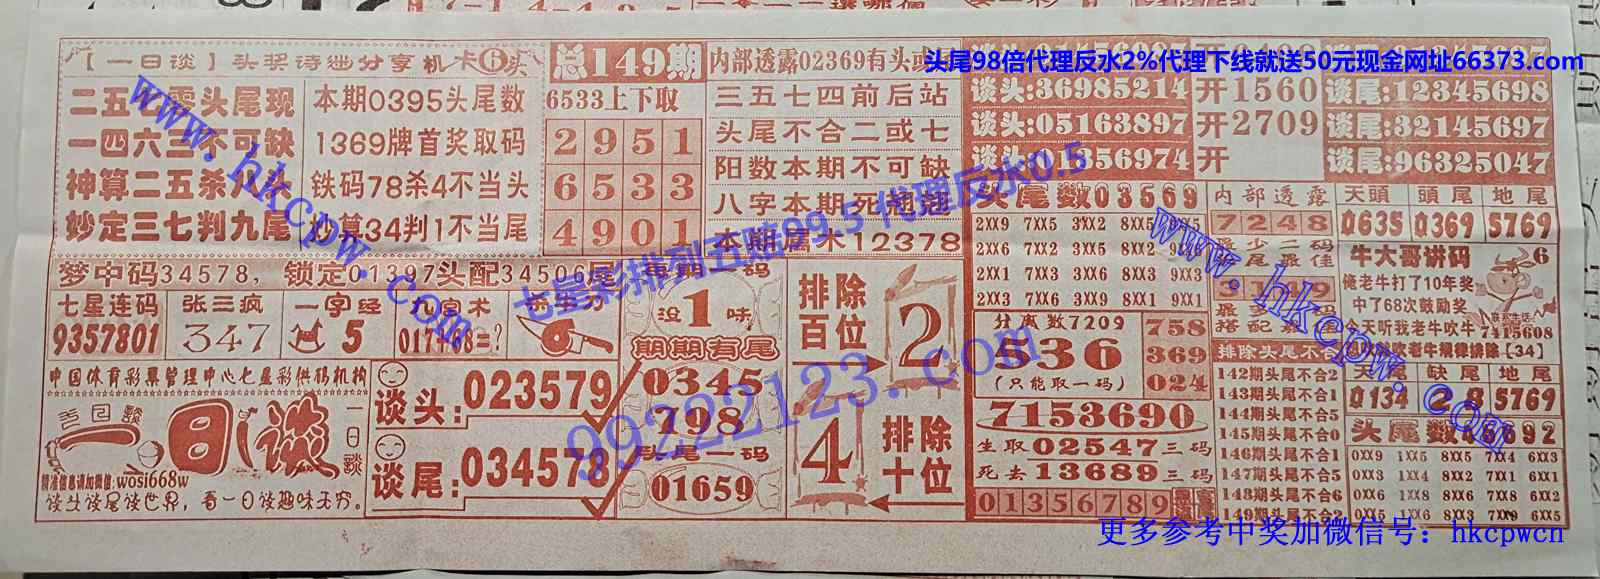 【一日谈】头奖诗谜分享机卡6头
二五 零头尾现
一四六三不可缺
神算二五杀八头
妙定三七判九尾
本期0395头尾数
1369牌首奖取码
铁码78杀4不当头
妙算34判1不当尾
总149期
6533上下取
2951
6533
4901
内部透露02369有头或
三五七四前后站
头尾不合二或七
阳数本期不可缺
八字本期死翘翘
本期属木12378
头尾98倍代理反水2%代理下线就送50元现金网址66373.com
谈头:36985214 开1560 谈尾:12345698
谈头:05163897 开2709 谈尾:32145697
谈头:01356974 开 谈尾:96325047
梦中码34578, 锁定01397头配34506尾
七星连码
9357801
张三疯
347
一字经
5
九宫术
每期一码
没1味
期期有尾
0345
798
头尾一码
01659
排除百位
2
4
排除十位
中国体育彩票管理中心七星彩供码机构
一日谈
精准信息请加微信:wosi668w
谈头谈尾谈世界,看一日谈趣味无穷。
谈头:023579
谈尾:034578
头尾数03569
2XX9 7XX5 3XX2 8XX5
2XX6 7XX2 3XX5 8XX2
2XX1 7XX3 3XX6 8XX3 9XX3
2XX3 7XX6 3XX9 8XX1 9XX1
分离数7209
536
(只能取一码)
758
369
024
7153690
生取02547三码
死去13689三码
01356789
内部透露
7248
最少二码
头尾最佳
3149
最多 码
搭配最佳
排除头尾不合
142期头尾不合2
143期头尾不合1
144期头尾不合5
145期头尾不合0
146期头尾不合1
147期头尾不合5
148期头尾不合6
149期头尾不合2
天頭 頭尾 地尾
0635 0369 5769
牛大哥讲码
6
俺老牛打了10年奖
中了68次鼓励奖
天听我老牛吹牛
7415608
吹老牛规律排除【34】
天尾 缺尾 地尾
0134 28 5769
头尾数
0XX9 1XX5 8XX5 7XX4 6XX3
0XX3 1XX4 8XX2 7XX1 6XX1
0XX6 1XX8 8XX6 7XX8 6XX2
0XX5 1XX6 8XX3 7XX9 6XX5
www.hkcpw.com
七星彩排列五赔99.5 代理反水0.5
99222123.com
www.hkcpw.com
更多参考中奖加微信号：hkcpwcn